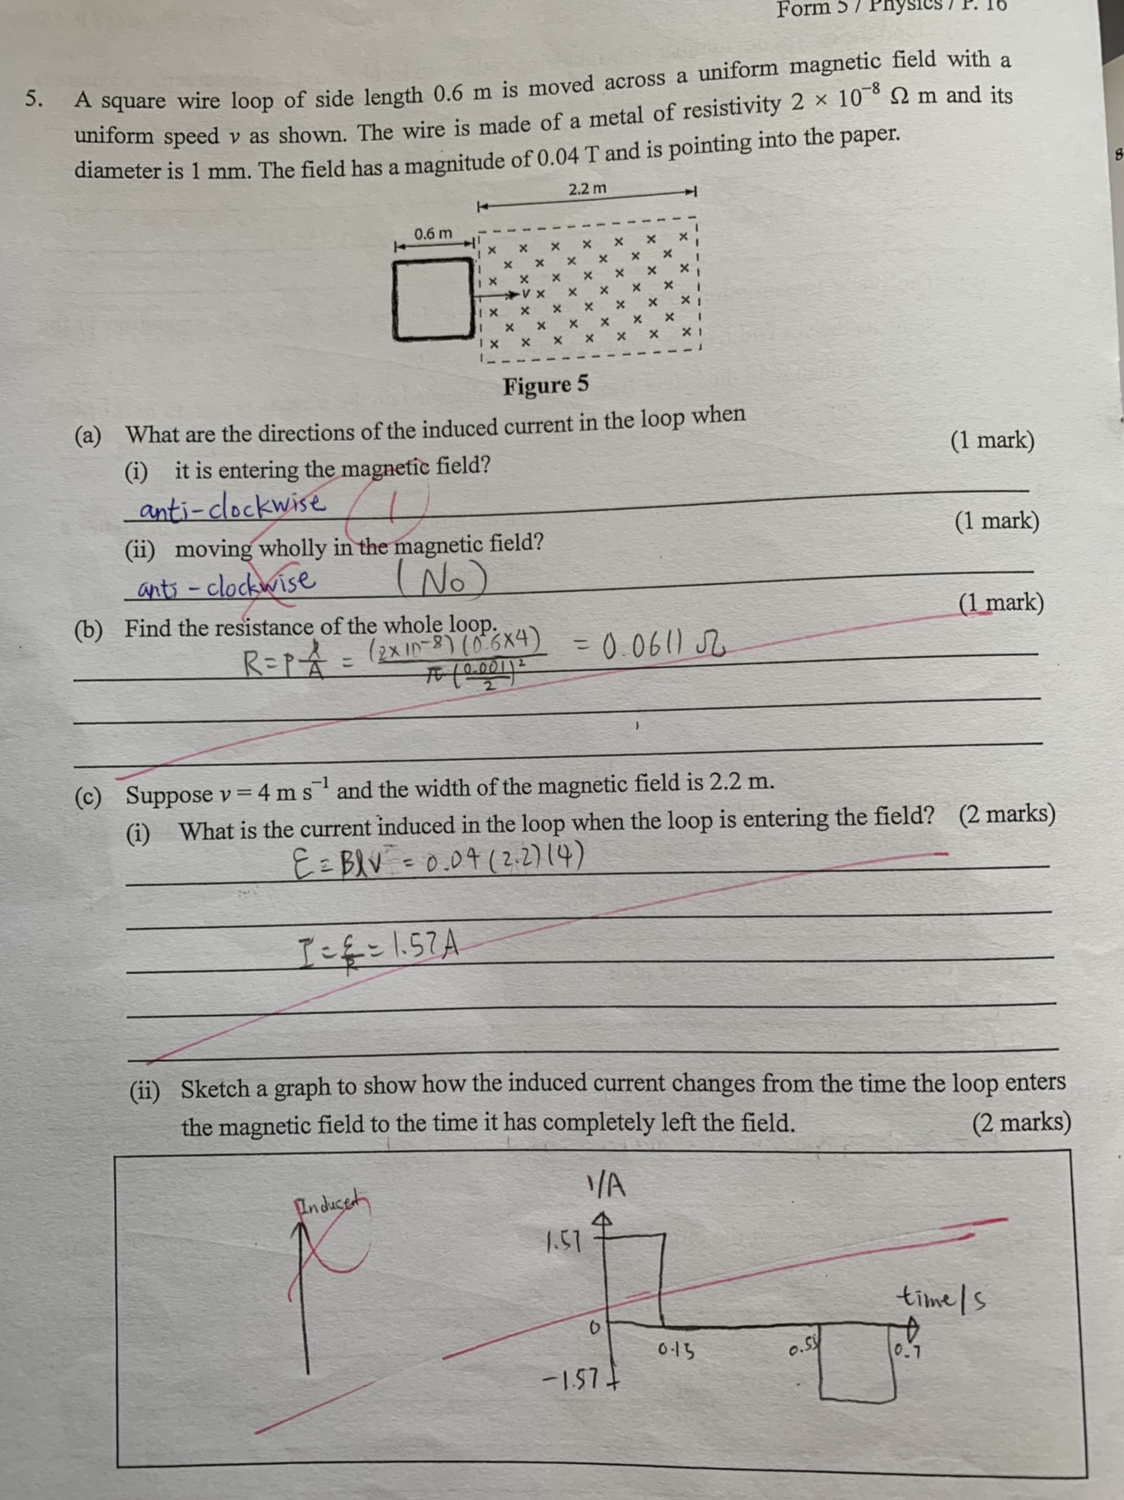 Form 5 / Physics / P. 16
5. A square wire loop of side length 0.6 m is moved across a uniform magnetic field with a
uniform speed v as shown. The wire is made of a metal of resistivity 2 × 10⁻⁸ Ω m and its
diameter is 1 mm. The field has a magnitude of 0.04 T and is pointing into the paper.
2.2 m
0.6 m
v
Figure 5
(a) What are the directions of the induced current in the loop when
(i) it is entering the magnetic field? (1 mark)
anti-clockwise 1
(ii) moving wholly in the magnetic field? (1 mark)
anti-clockwise (No)
(b) Find the resistance of the whole loop. (1 mark)
R=ρ l/A = (2×10⁻⁸)(0.6×4) / π(0.001/2)² = 0.0611 Ω
(c) Suppose v = 4 m s⁻¹ and the width of the magnetic field is 2.2 m.
(i) What is the current induced in the loop when the loop is entering the field? (2 marks)
ε = Blv = 0.04 (2.2)(4)
I = ε/R = 1.57A
(ii) Sketch a graph to show how the induced current changes from the time the loop enters
the magnetic field to the time it has completely left the field. (2 marks)
Induced
I/A
1.57
time/s
0
0.15
0.55
0.7
-1.57